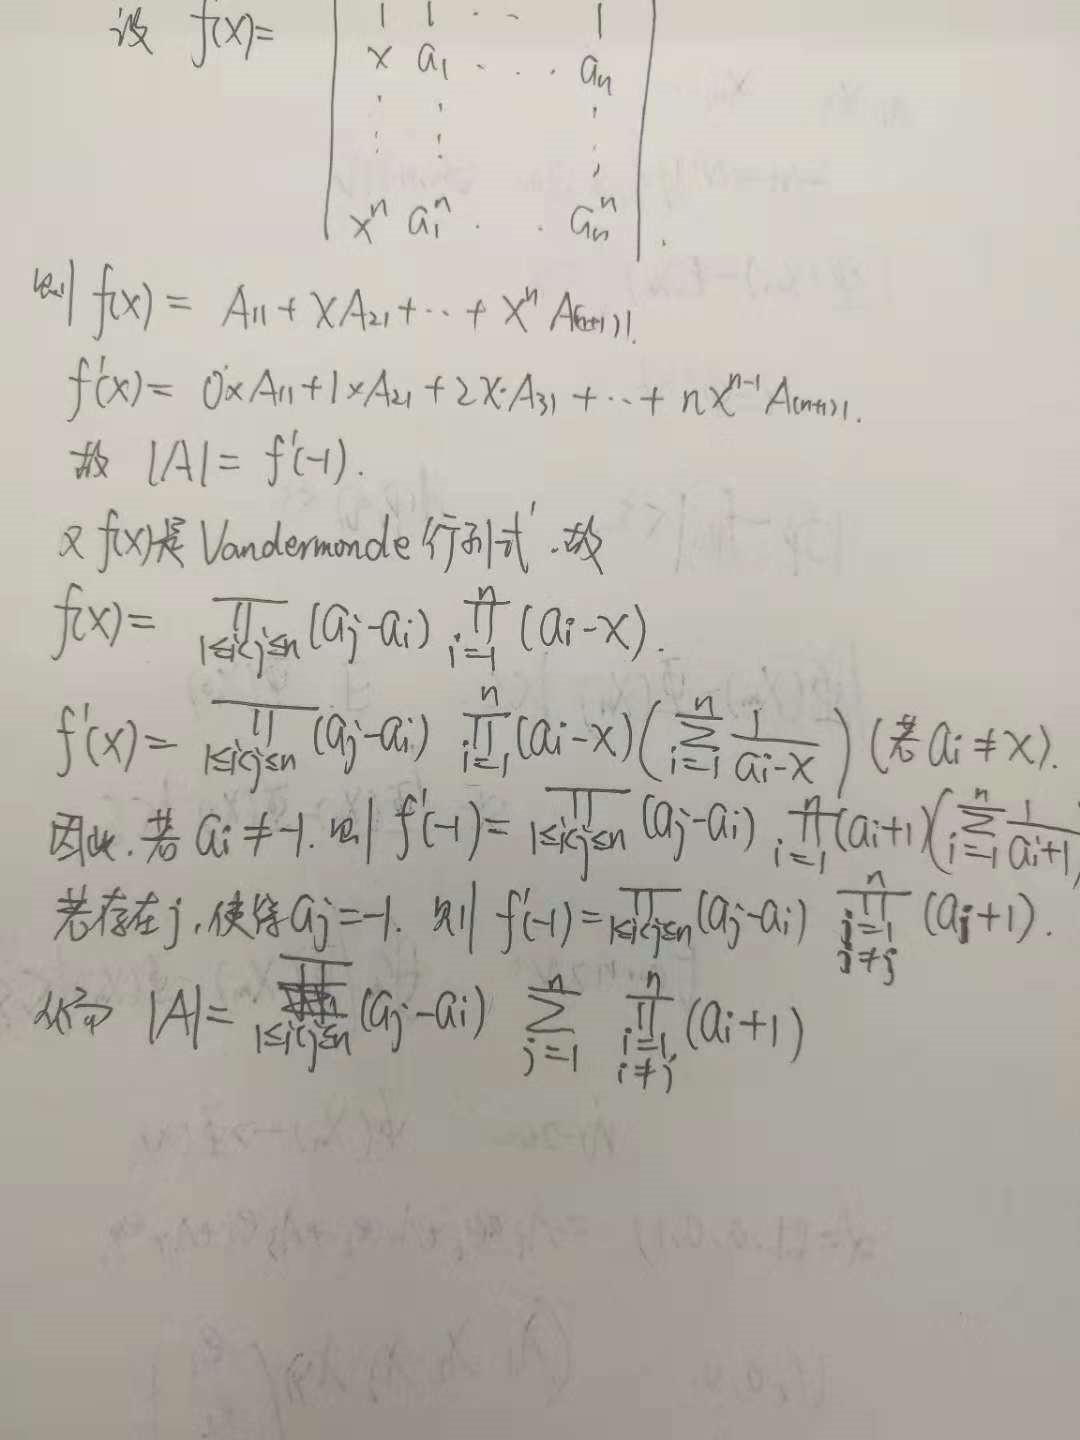 设 f(x)= | 1 1 · · 1 |
x a₁ · · · aₙ
xⁿ a₁ⁿ · · aₙⁿ .
则 f(x) = A₁₁ + xA₂₁ + ··· + xⁿ A₍ₙ₊₁₎₁.
f'(x) = 0×A₁₁ + 1×A₂₁ + 2x·A₃₁ + ··· + nxⁿ⁻¹ A₍ₙ₊₁₎₁.
故 |A| = f'(-1).
又 f(x)是 Vandermonde 行列式. 故
f(x) = ∏_{1≤i<j≤n} (aⱼ-aᵢ) ∏_{i=1}^{n} (aᵢ-x).
f'(x) = ∏_{1≤i<j≤n} (aⱼ-aᵢ) ∏_{i=1}^{n} (aᵢ-x) (∑_{i=1}^{n} 1/(aᵢ-x)) (若 aᵢ≠x).
因此. 若 aᵢ≠-1. 则 f'(-1) = ∏_{1≤i<j≤n} (aⱼ-aᵢ) ∏_{i=1}^{n} (aᵢ+1) (∑_{i=1}^{n} 1/(aᵢ+1)
若存在j, 使得 aⱼ=-1. 则 f'(-1) = ∏_{1≤i<j≤n} (aⱼ-aᵢ) ∏_{j=1, i≠j}^{n} (aⱼ+1).
|A| = ∏_{1≤i<j≤n} (aⱼ-aᵢ) ∑_{j=1}^{n} ∏_{i=1, i≠j}^{n} (aᵢ+1)